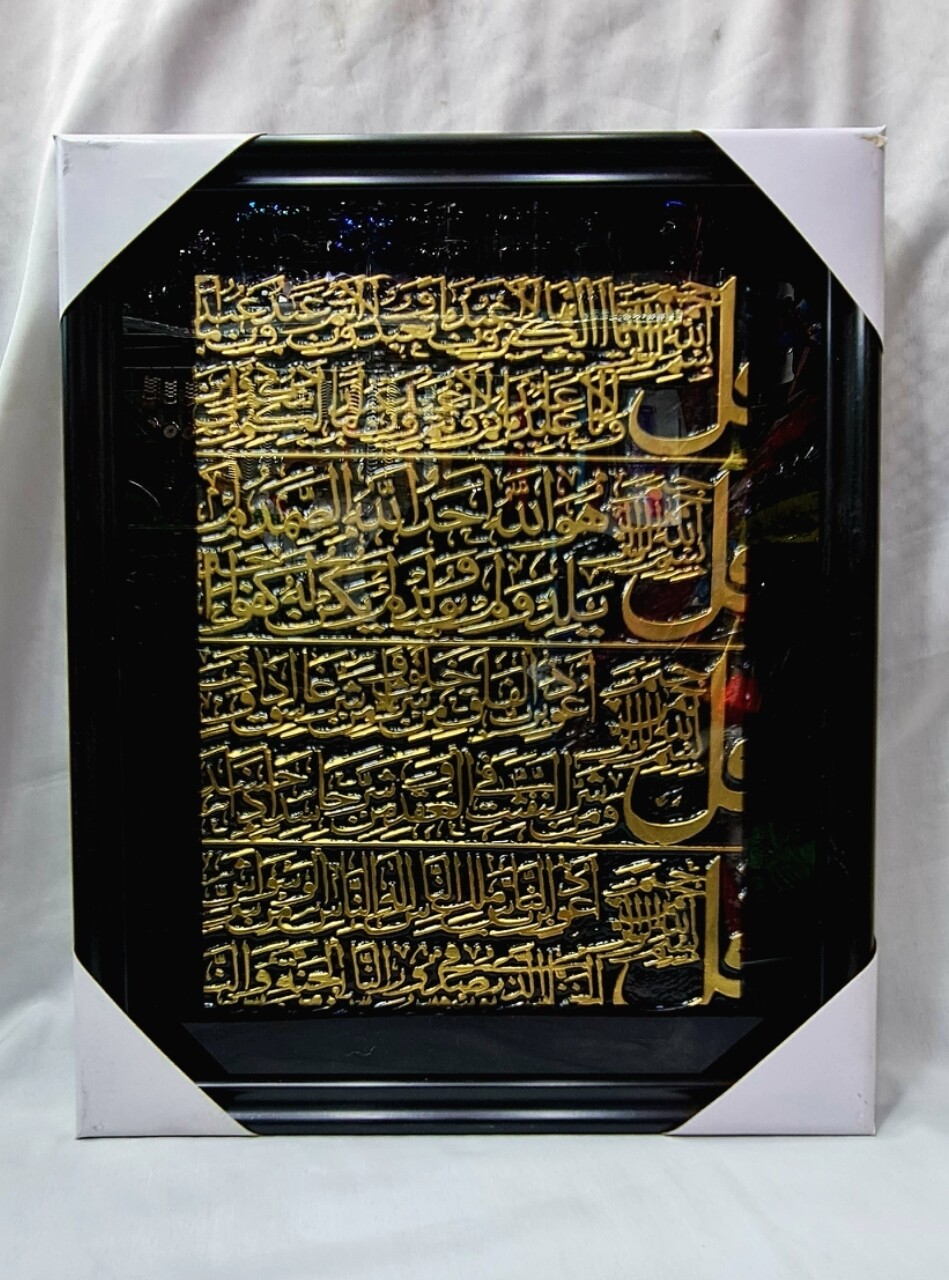 قل بسم الله الرحمن الرحيم يا أيها الكفرون لا أعبد ما تعبدون ولا أنتم عبدون
ولا أنا عابد ما عبدتم ولا أنتم عبدون ما أعبد لكم دينكم
قل بسم الله الرحمن الرحيم هو الله أحد الله الصمد لم
يلد ولم يولد ولم يكن له كفوا
قل بسم الله الرحمن الرحيم أعوذ برب الفلق من شر ما خلق ومن شر غاسق إذا وقب
ومن شر النفثت في العقد ومن شر حاسد إذا حسد
قل بسم الله الرحمن الرحيم أعوذ برب الناس ملك الناس إله الناس من شر الوسواس
الخناس الذي يوسوس في صدور الناس من الجنة والنا